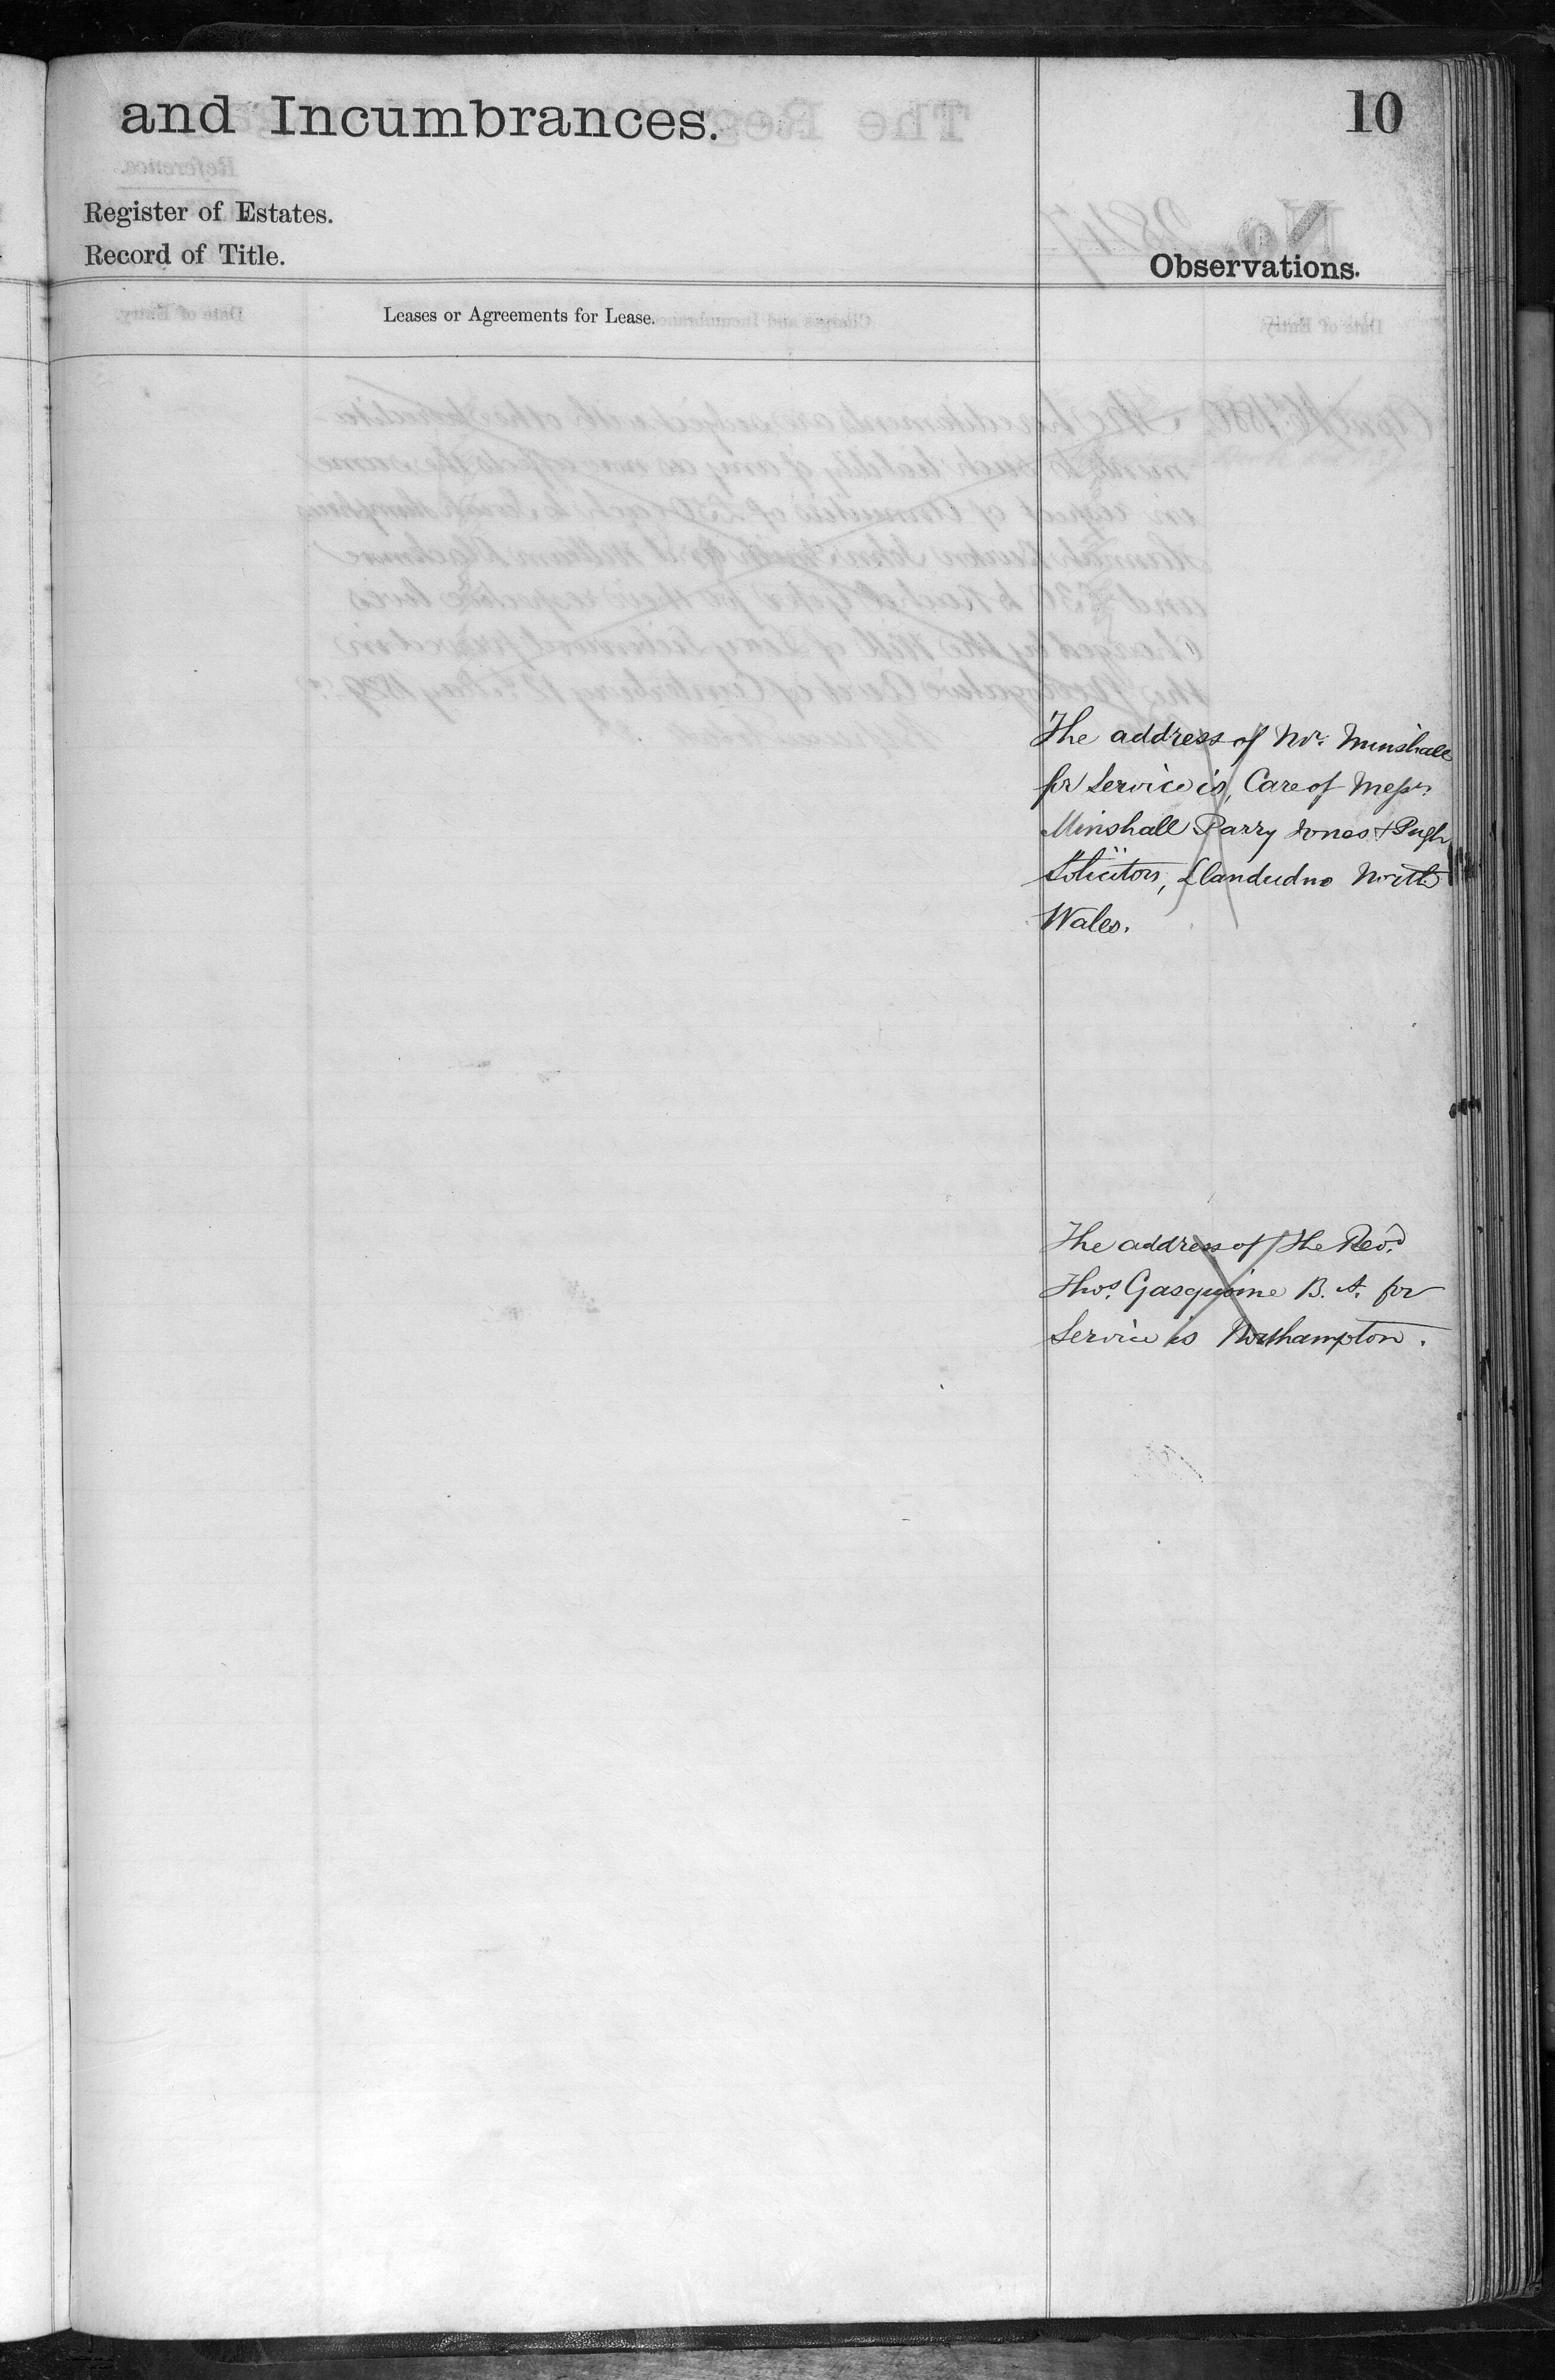 and Incumbrances.
10
Register of Estates.
Record of Title.
Observations.
Leases or Agreements for Lease.
The address of Mr. Minshall
for Service is, Care of Messrs
Minshall Parry Jones & Pugh
Solicitors, Llandudno North
Wales.
The address of the Revd
Thos. Gasquoine B. A. for
Service is Northampton.